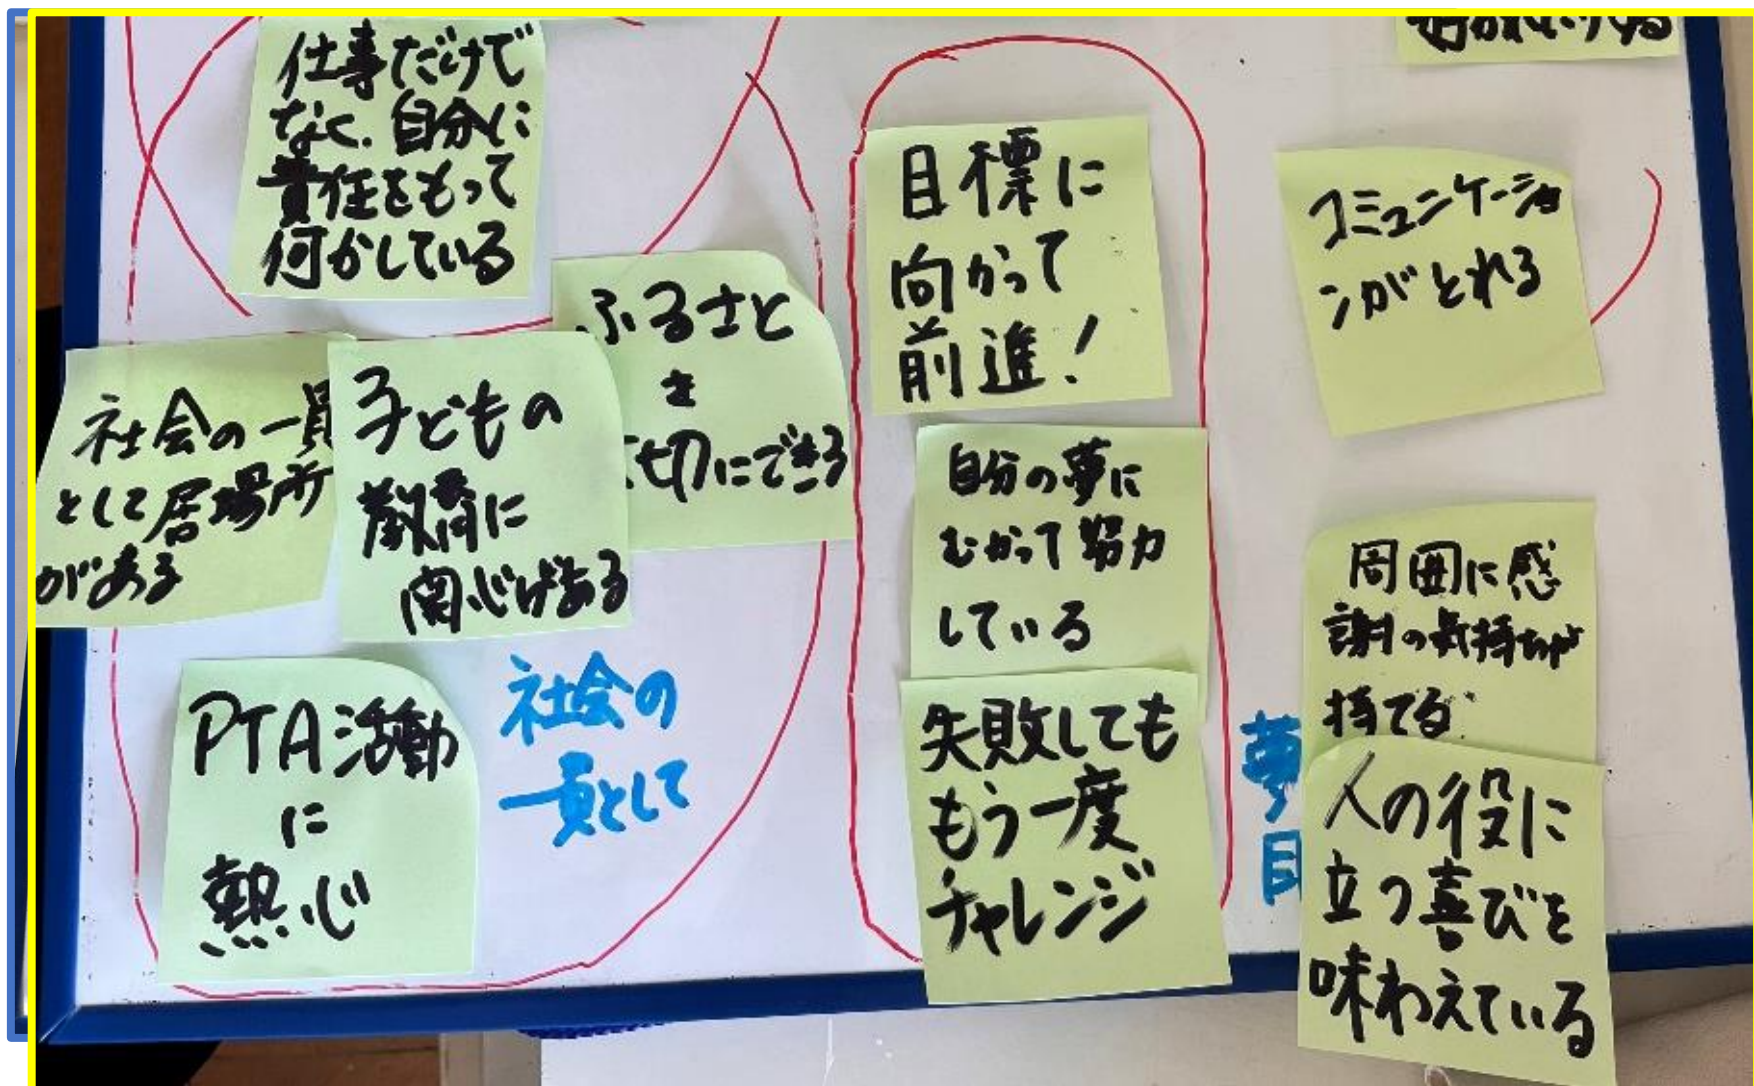 仕事だけで
なく、自分に
責任をもって
何かしている
ふるさと
を
切にできる
社会の一員
として居場所
がある
子どもの
教育に
関心がある
PTA活動
に
熱心
社会の
一員として
目標に
向かって
前進!
自分の夢に
むかって努力
している
失敗しても
もう一度
チャレンジ
夢
目
コミュニケーショ
ンがとれる
周囲に感
謝の気持ちが
持てる
人の役に
立つ喜びを
味わえている